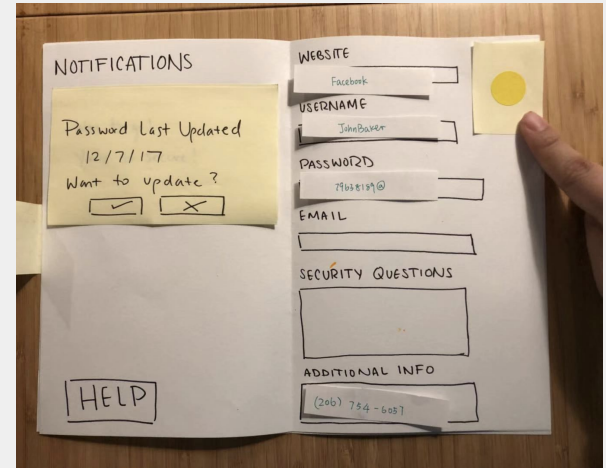 NOTIFICATIONS
Password Last Updated
12/7/17
Want to update?
HELP
WEBSITE
Facebook
USERNAME
JohnBaker
PASSWORD
79638189@
EMAIL
SECURITY QUESTIONS
ADDITIONAL INFO
(206) 754-6051